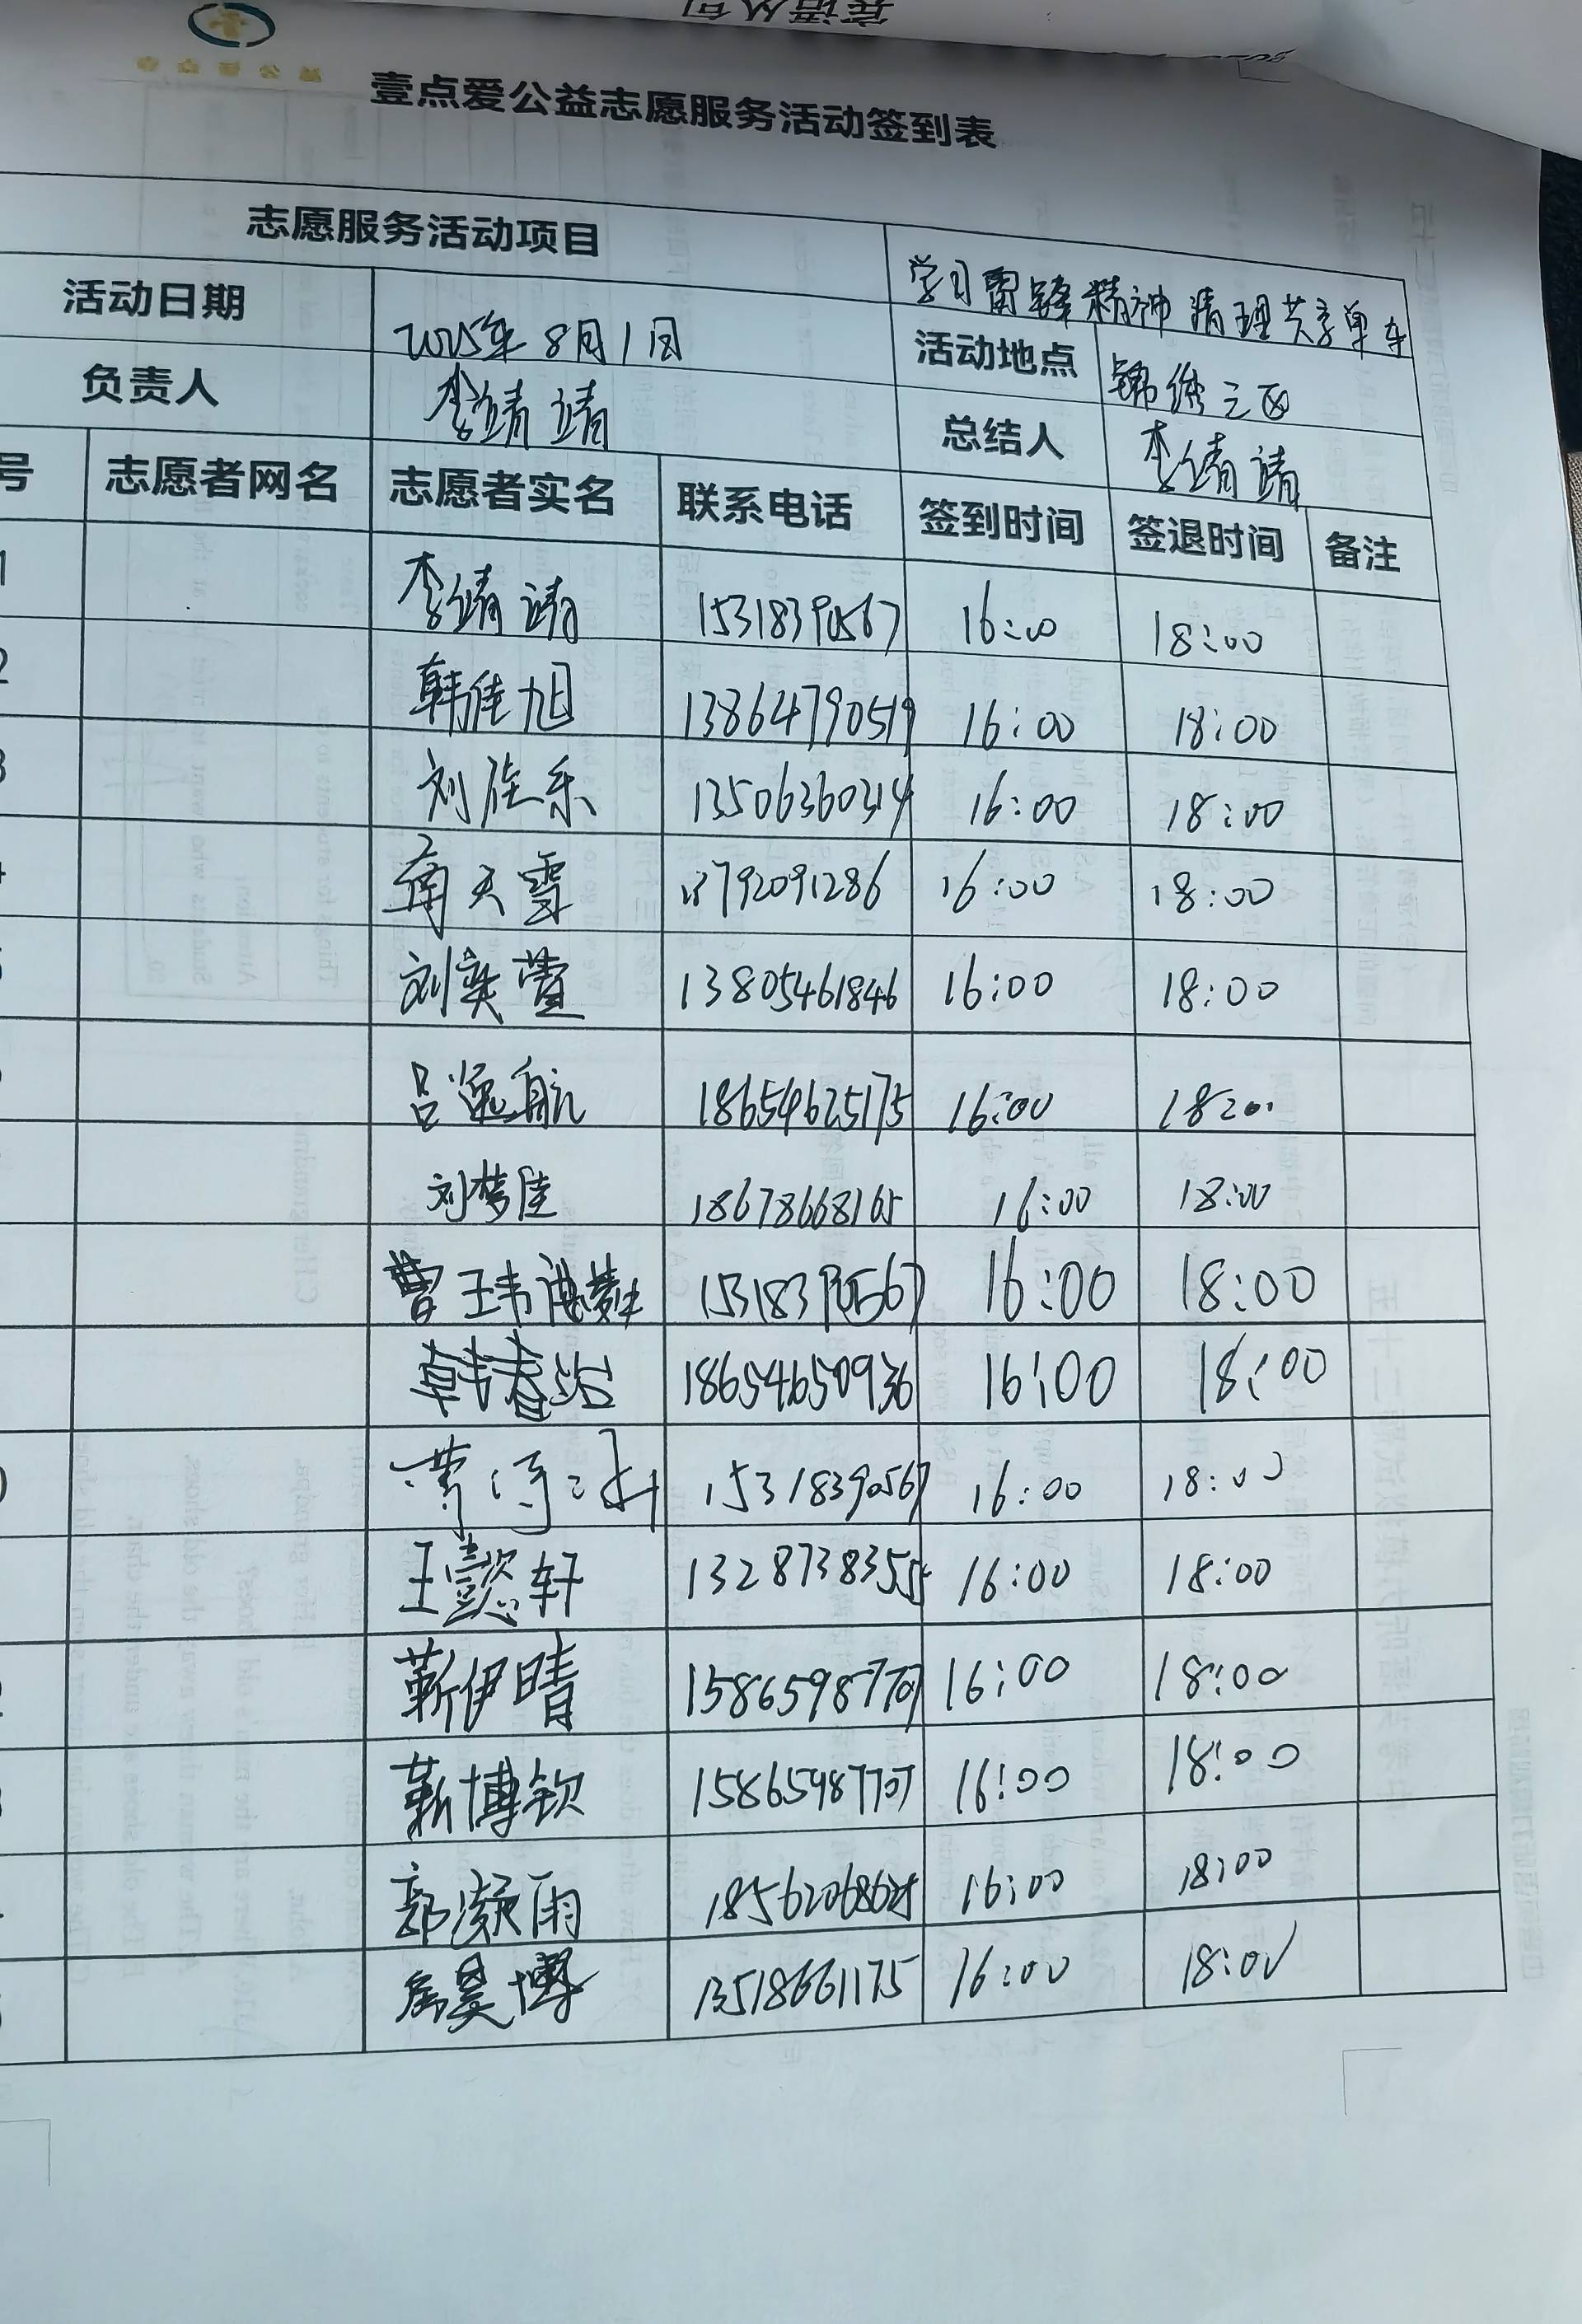 壹点爱公益志愿服务活动签到表
志愿服务活动项目 学习雷锋精神清理共享单车
活动日期 2025年8月1日 活动地点 锦绣三区
负责人 李靖靖 总结人 李靖靖
号 志愿者网名 志愿者实名 联系电话 签到时间 签退时间 备注
1 李靖靖 15318390567 16:00 18:00
2 韩佳旭 13864790519 16:00 18:00
3 刘佳乐 13506360314 16:00 18:00
天雪 13792091286 16:00 18:00
刘奕萱 13805461846 16:00 18:00
吕逸航 18654625175 16:00 18:00
刘梦佳 18678668165 16:00 18:00
曹玮 15318390567 16:00 18:00
韩春 18654650936 16:00 18:00
15318390567 16:00 18:00
王懿轩 1328738355 16:00 18:00
靳伊晴 15865987707 16:00 18:00
靳博钦 15865987707 16:00 18:00
郭凝雨 16:00 18:00
昊博 13518661175 16:00 18:00